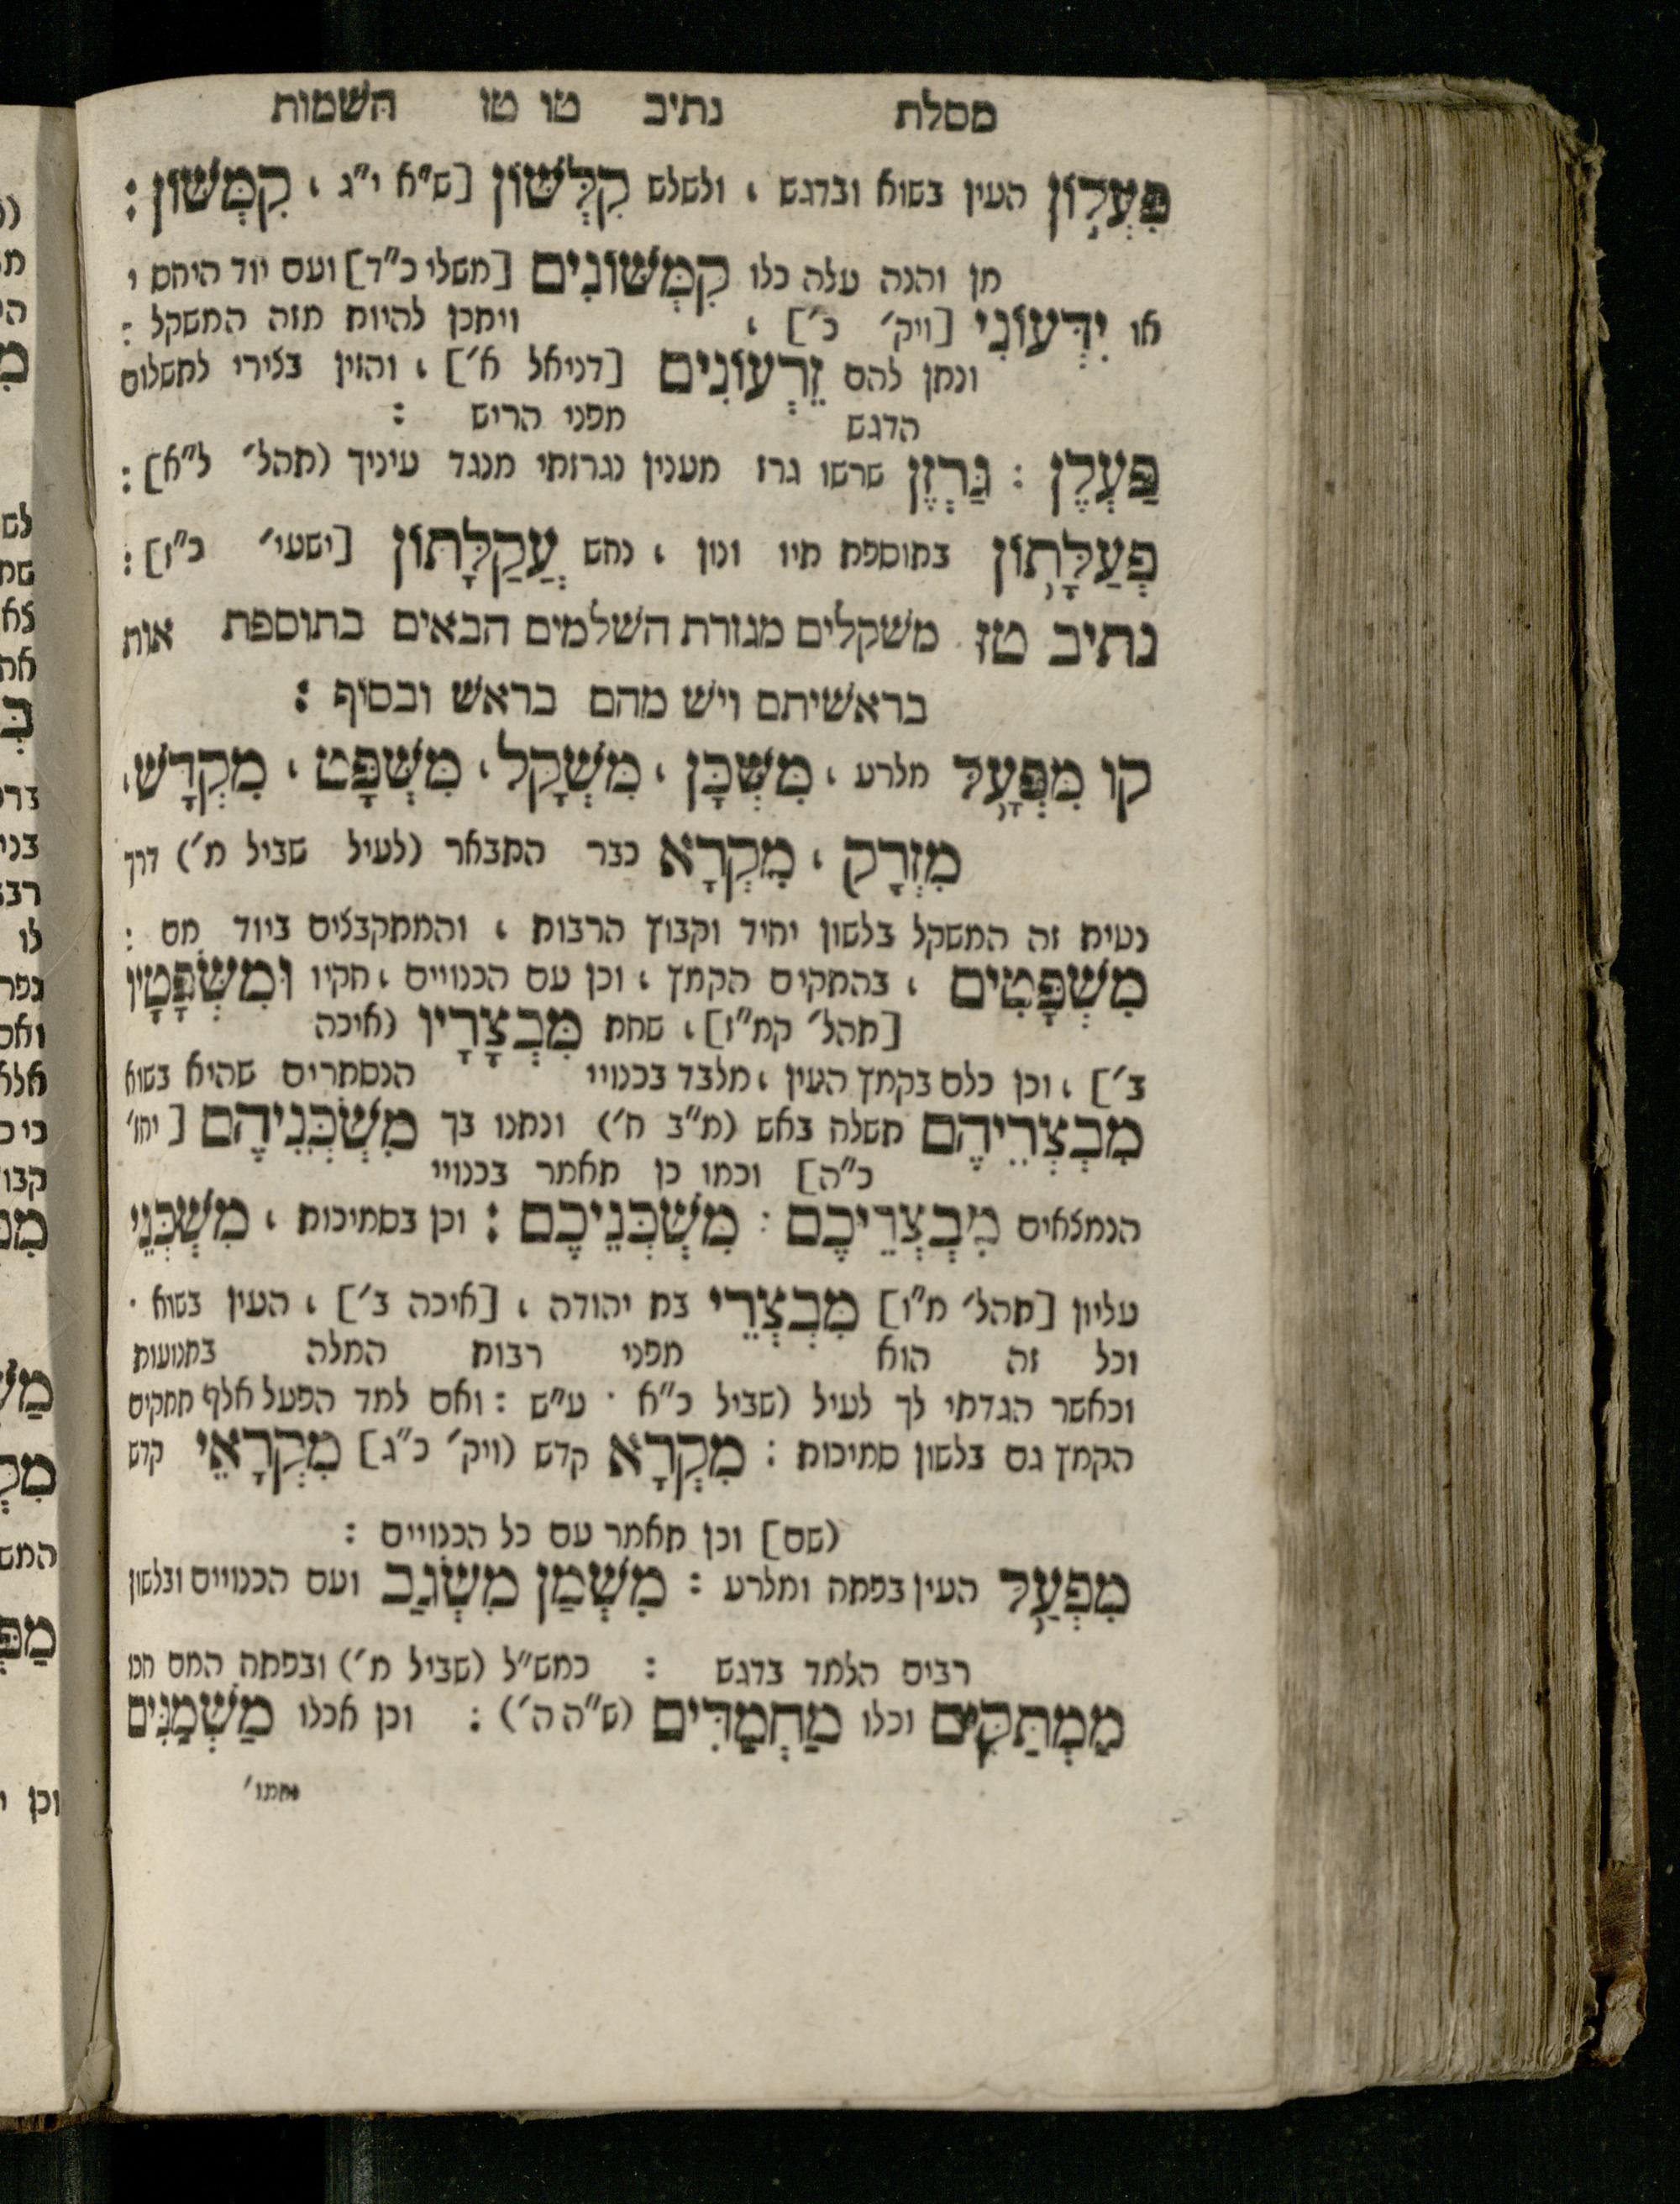 מסלת נתיב טו טז השמות
פִּעְלוֹן העין בשוא ובדגש , ולשלש קִלְּשׁוֹן [ש"א י"ג , קִמְּשׁוֹן :
מן והנה עלה כלו קִמְּשׁוֹנִים [משלי כ"ד] ועם יוד היחס י
או יִדְּעוֹנִי [ויק' כ'] , ויתכן להיות מזה המשקל :
ונתן להם זֵרְעוֹנִים [דניאל א'] , והזין בצירי לתשלום
הדגש מפני הריש :
פַּעְלֶן : גַּרְזֶן שרשו גרז מענין נגרזתי מנגד עיניך (תהל' ל"א] :
פְּעַלָּתוֹן בתוספת תיו ונון , נחש עֲקַלָּתוֹן [ישעי' כ"ז] :
נתיב טז משקלים מגזרת השלמים הבאים בתוספת אות
בראשיתם ויש מהם בראש ובסוף :
קו מִפְּעָל מלרע , מִשְּׁכָּן , מִּשְׁקָל , מִשְׁפָּט , מִקְדָּשׁ,
מִזְרָק , מִקְרָא כבר התבאר (לעיל שביל מ') דרך
נטית זה המשקל בלשון יחיד וקבוץ הרבות , והמתקבצים ביוד מם :
מִשְׁפָּטִים , בהתקים הקמץ , וכן עם הכנויים , חקיו וּמִשְׁפָּטָיו
[תהל' קמ"ז] , שחת מִּבְצָרָיו (איכה
ב'] , וכן כלם בקמץ העין , מלבד בכנויי הנסתרים שהיא בשוא
מִבְצְרֵיהֶם תשלח באש (מ"ב ח') ונתנו בך מִשְׁכְּנֵיהֶם [יחז'
כ"ה] וכמו כן תאמר בכנויי
הנמצאים מִבְצְרֵיכֶם : מִּשְׁכְּנֵיכֶם : וכן בסמיכות , מִשְׁכְּנֵי
עליון [תהל' מ"ו] מִּבְצְרֵי בת יהודה , [איכה ב'] , העין בשוא ·
וכל זה הוא מפני רבות המלה בתנועות
וכאשר הגדתי לך לעיל (שביל כ"א · ע"ש : ואם למד הפעל אלף תתקים
הקמץ גם בלשון סמיכות : מִקְרָא קדש (ויק' כ"ג] מִקְרָאֵי קדש
(שם] וכן תאמר עם כל הכנויים :
מִפְעַל העין בפתח ומלרע : מִשְׁמַן מִשְׂגַב ועם הכנויים ובלשון
רבים הלמד בדגש : כמש"ל (שביל מ') ובפתח המם חכו
מַמְתַּקִּים וכלו מַחְמַדִּים (ש"ה ה') : וכן אכלו מַשְׁמַנִּים